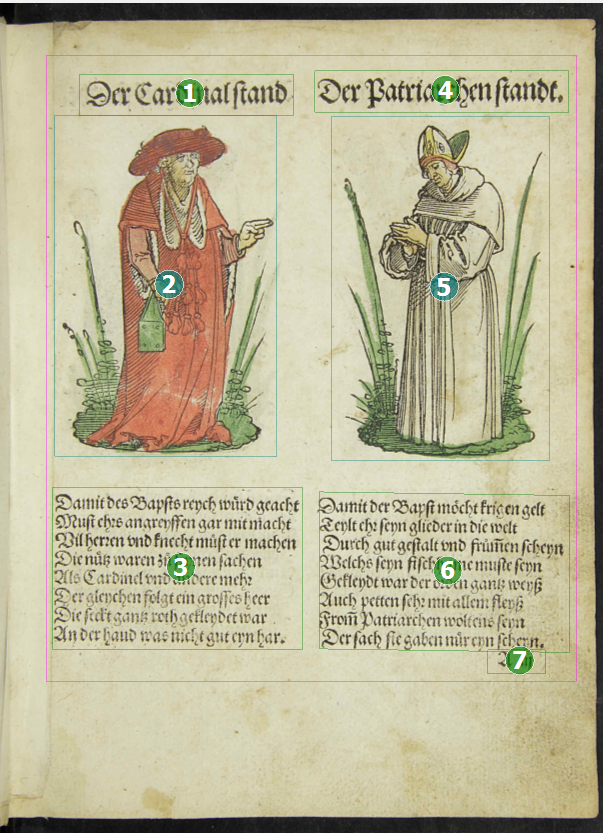 1
Der Cardinal stand
2
3
Damit des Bapsts reych würd geacht
Must ehrs angreyffen gar mit macht
Vil herren vnd knecht müst er machen
Die nütz waren sachen
Als Cardinel vnd andere mehr
Der gleychen folgt ein grosses heer
Die steckt gantz roth gekleydet war
An der haud was nicht gut eyn har.
4
Der Patriarchen standt.
5
6
Damit der Bapst möcht krigen gelt
Teylt ehr seyn glieder in die welt
Durch gut gestalt vnd frümen scheyn
Welchs seyn muste seyn
Gekleydt war der orden gantz weyß
Auch petten sehr mit allem fleyß
From Patriarchen woltens seyn
Der sach sie gaben nür eyn scheyn.
7